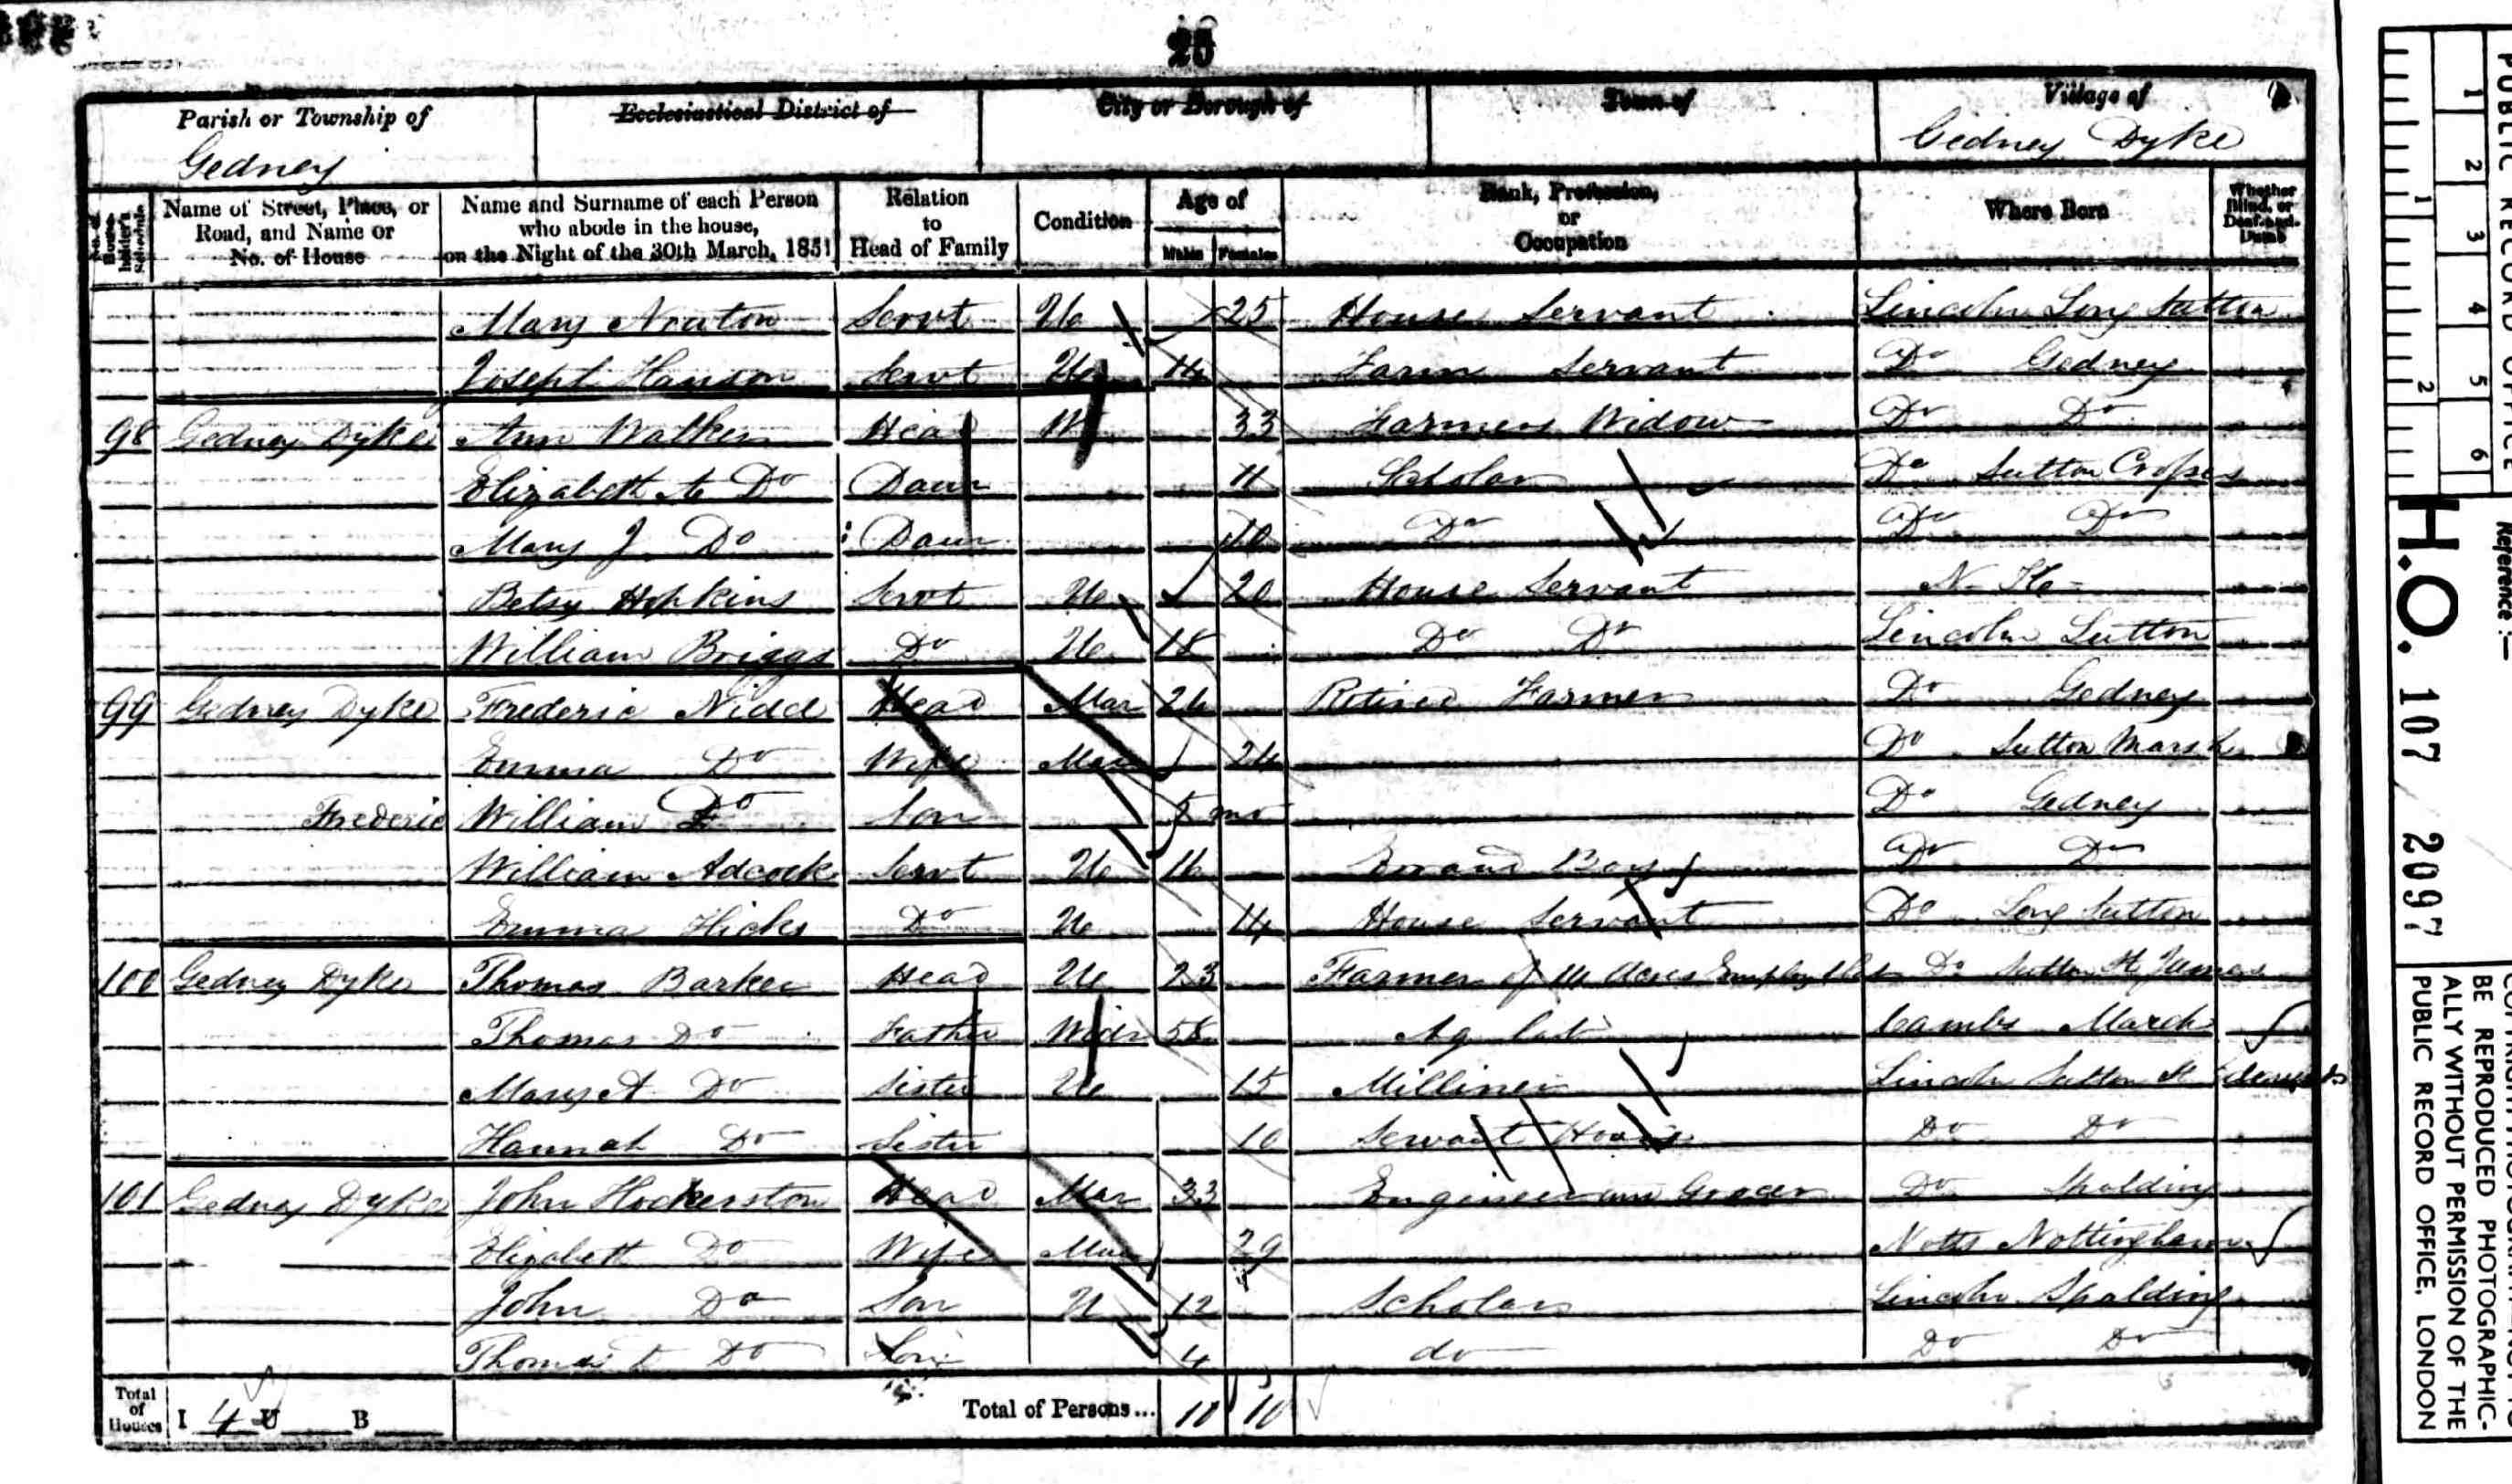 25
Parish or Township of Ecclesiastical District of City or Borough of Town of Village of
Gedney Gedney Dyke
No. of House-holder's Schedule Name of Street, Place, or Road, and Name or No. of House Name and Surname of each Person who abode in the house, on the Night of the 30th March, 1851 Relation to Head of Family Condition Age of Males Females Rank, Profession, or Occupation Where Born Whether Blind, or Deaf-and-Dumb
Mary Newton Servt U 25 House Servant Lincoln Long Sutton
Joseph Hanson Servt U 14 Farm Servant Do Gedney
98 Gedney Dyke Ann Walker Head W 33 Farmers Widow Do Do
Elizabeth A Do Daur 11 Scholar Do Sutton Crosses
Mary J Do Daur 10 Do Do Do
Betsy Hopkins Servt U 20 House Servant N. K.
William Briggs Do U 18 Do Do Lincoln Sutton
99 Gedney Dyke Frederic Nidd Head Mar 26 Retired Farmer Do Gedney
Emma Do Wife Mar 24 Do Sutton Marsh
Frederic William Do Son 5 mo Do Gedney
William Adcock Servt U 16 Errand Boy Do Do
Emma Hicks Do U 14 House Servant Do Long Sutton
100 Gedney Dyke Thomas Barker Head U 23 Farmer of Acres Do Sutton St James
Thomas Do Father Widr 58 Ag Lab Cambs March
Mary A Do Sister U 15 Milliner Lincoln Sutton St James
Hannah Do Sister 10 Servant House Do Do
101 Gedney Dyke John Hockerston Head Mar 33 Engineer and Grocer Do Spalding
Elizabeth Do Wife Mar 29 Notts Nottingham
John Do Son U 12 Scholar Lincoln Spalding
Thomas Do Son 4 do Do Do
Total of Houses I 4 U B Total of Persons... 10 10
PUBLIC RECORD OFFICE
1 2 3 4 5 6
1 2
Reference:—
H.O. 107 / 2097
BE REPRODUCED PHOTOGRAPHIC-
ALLY WITHOUT PERMISSION OF THE
PUBLIC RECORD OFFICE, LONDON